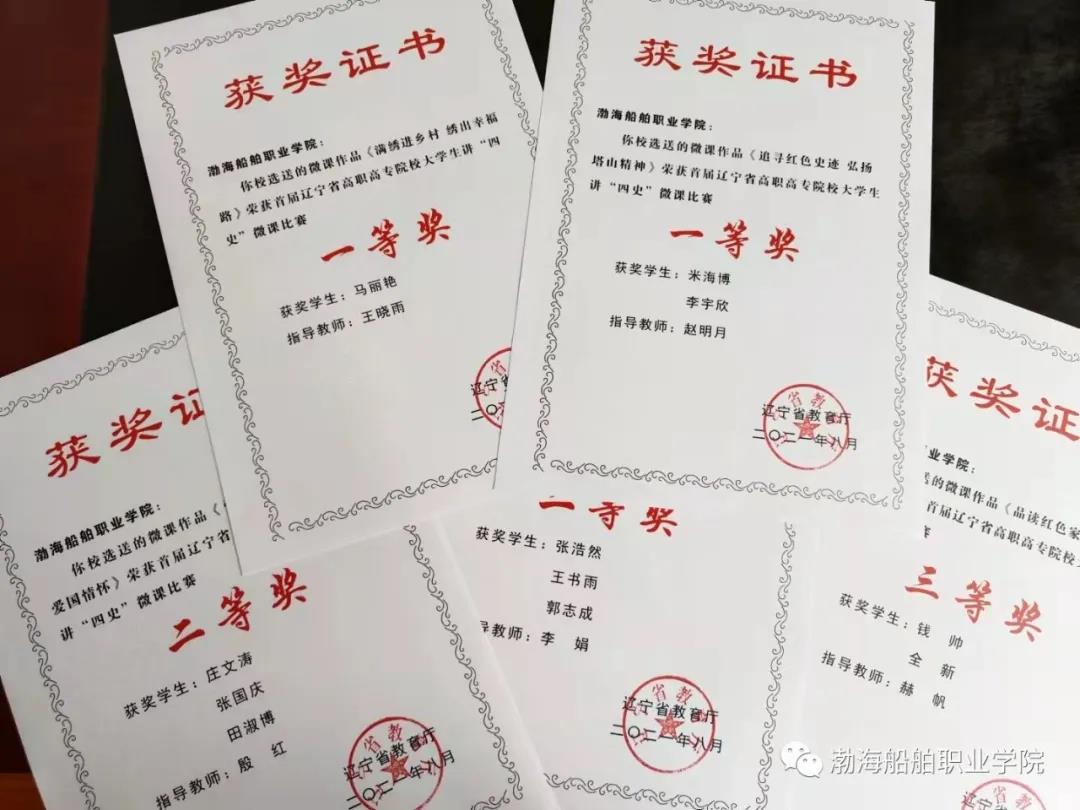 获奖证书
渤海船舶职业学院：
你校选送的微课作品《满绣进乡村 绣出幸福
路》荣获首届辽宁省高职高专院校大学生讲“四
史”微课比赛
一等奖
获奖学生：马丽艳
指导教师：王晓雨
辽宁省
二〇
获奖证书
渤海船舶职业学院：
你校选送的微课作品《追寻红色史迹 弘扬
塔山精神》荣获首届辽宁省高职高专院校大学生
讲“四史”微课比赛
一等奖
获奖学生：米海博
李宇欣
指导教师：赵明月
辽宁省教育厅
二〇二一年八月
获奖证
渤海船舶职业学院：
你校选送的微课作品《
爱国情怀》荣获首届辽宁省
讲“四史”微课比赛
二等奖
获奖学生：庄文涛
张国庆
田淑博
指导教师：殷 红
辽宁省教育厅
二〇二一年八月
等奖
获奖学生：张浩然
王书雨
郭志成
导教师：李 娟
辽宁省教育厅
二〇二一年八月
获奖证
业学院：
送的微课作品《品读红色家
首届辽宁省高职高专院校大
赛
三等奖
获奖学生：钱 帅
全 新
指导教师：赫 帆
辽宁省教育厅
渤海船舶职业学院